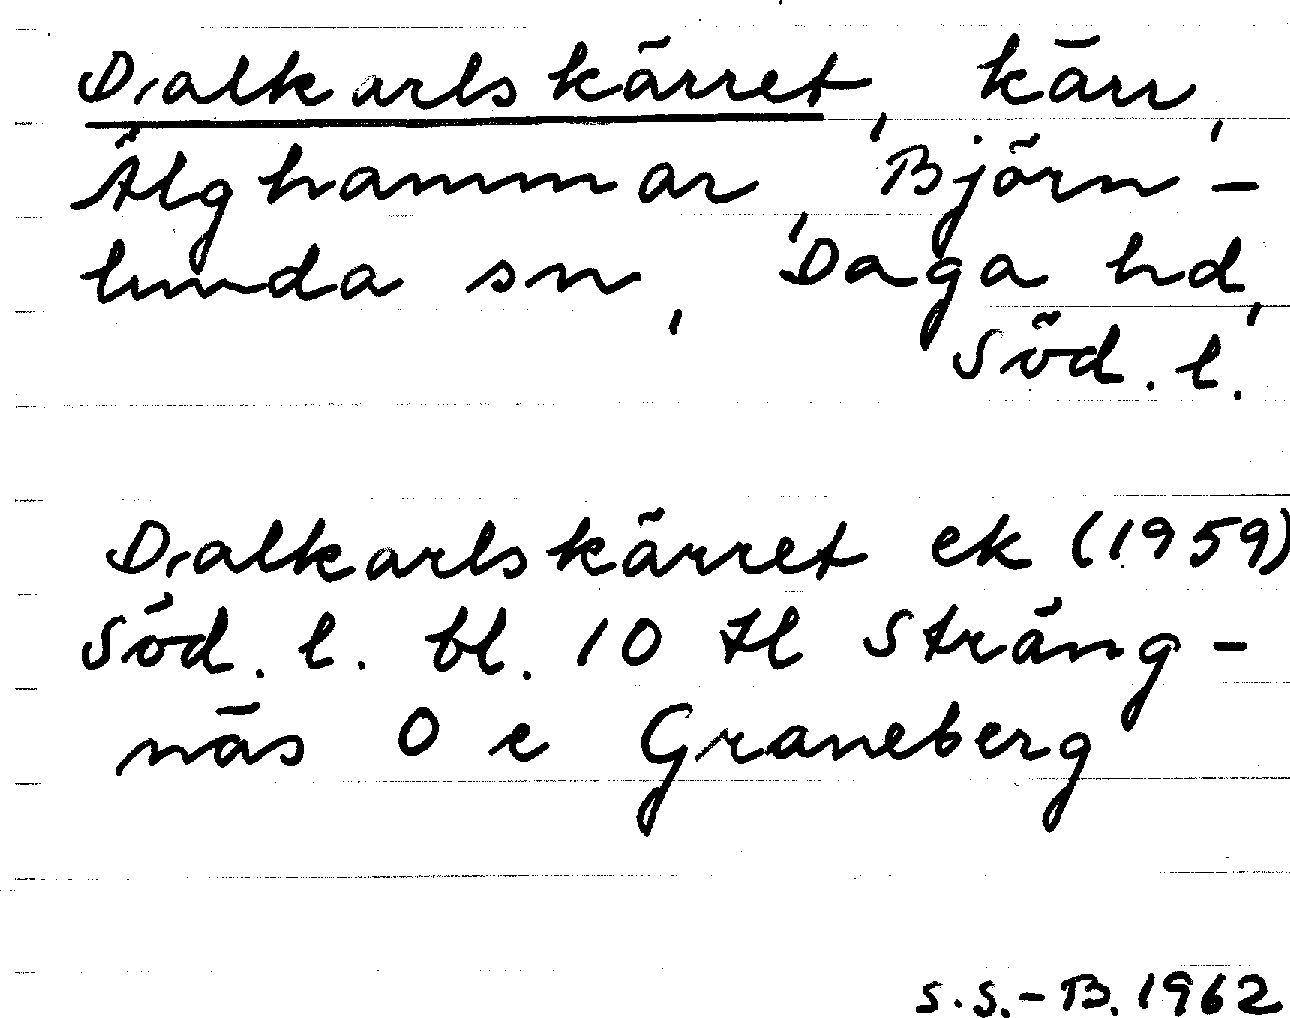 Dalkarlskärret, kärr,
Älghammar, Björn-
lunda sn, Daga hd,
Söd. l.
Dalkarlskärret ek (1959)
Söd. l. bl. 10 tl Sträng-
näs O e Graneberg
S.S.-B. 1962